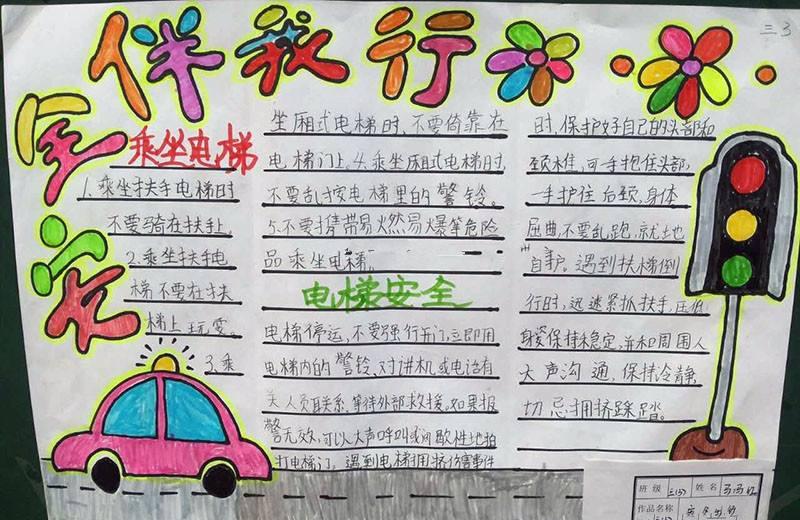 三3
安全伴我行
乘坐电梯
1.乘坐扶手电梯时
不要骑在扶手上
2.乘坐扶手电
梯不要在扶
梯上玩耍。
3.乘
坐厢式电梯时,不要倚靠在
电梯门上。4.乘坐厢式电梯时,
不要乱按电梯里的警铃。
5.不要携带易燃易爆等危险
品乘坐电梯。
电梯安全
电梯停运,不要强行开门,立即用
电梯内的警铃、对讲机或电话有
关人员联系,等待外部救援。如果报
警无效,可以大声呼叫或间歇性地拍
打电梯门。遇到电梯拥挤伤害事件
时,保护好自己的头部和
颈椎,可手抱住头部,
一手护住后颈,身体
屈曲,不要乱跑,就地
自护。遇到扶梯倒
行时,迅速紧抓扶手,压低
身姿保持稳定,并和周围人
大声沟通,保持冷静
切忌拥挤踩踏。
班级 三(3) 姓名
作品名称